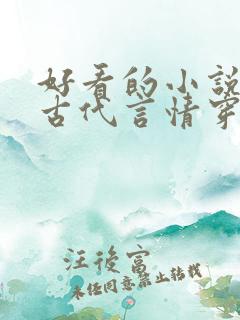 好看的小說
古代言情穿
汪後富
未經同意禁止轉載